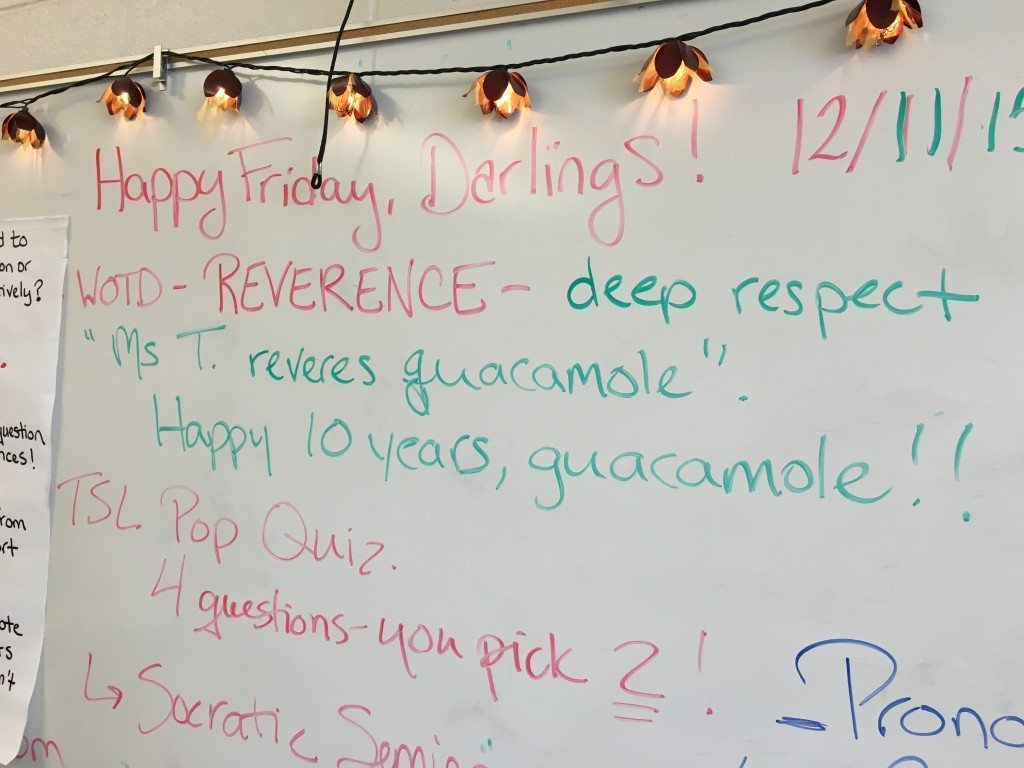 Happy Friday, Darlings! 12/11/15
WOTD - REVERENCE - deep respect
"Ms T. reveres guacamole".
Happy 10 years, guacamole!!
TSL Pop Quiz.
4 questions - you pick 2!
↳ Socratic
to
on or
question